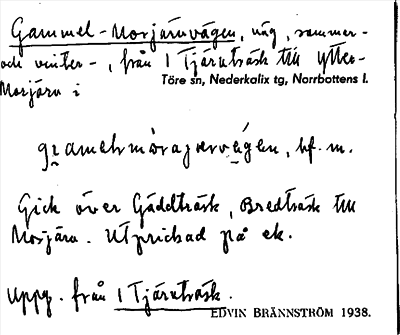 Gammel-Morjärvvägen, väg, sommar-
och vinter-, från 1 Tjärnträsk till Ytter-
Töre sn, Nederkalix tg, Norrbottens l.
Morjärv i
Gick över Gäddträsk, Bredträsk till
Morjärv. Utprickad på ek.
Uppg. från 1 Tjärnträsk.
EDVIN BRÄNNSTRÖM 1938.